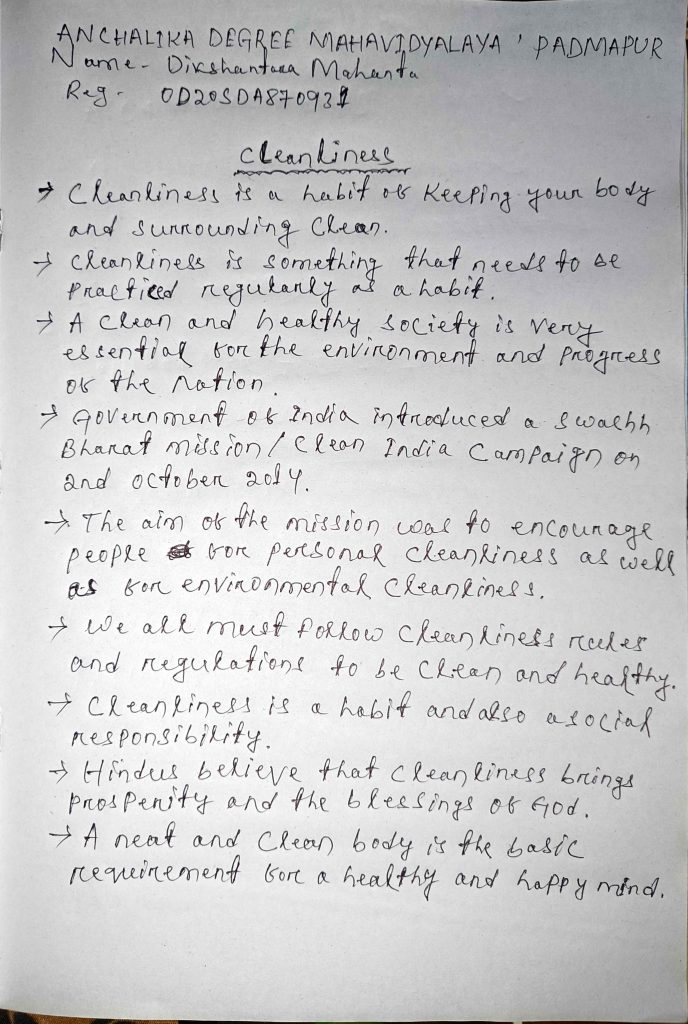 ANCHALIKA DEGREE MAHAVIDYALAYA ' PADMAPUR
Name - Dikshantara Mahanta
Reg - OD20SDA870931
Cleanliness
→ Cleanliness is a habit of Keeping your body
and surrounding Clean.
→ Cleanliness is something that needs to be
Practiced regularly as a habit.
→ A Clean and healthy society is very
essential for the environment and Progress
of the Nation.
→ Government of India introduced a swachh
Bharat mission / Clean India Campaign on
2nd october 2014.
→ The aim of the mission was to encourage
people for personal cleanliness as well
as for environmental Cleanliness.
→ We all must follow Cleanliness rules
and regulations to be Clean and healthy.
→ Cleanliness is a habit and also a social
responsibility.
→ Hindus believe that cleanliness brings
prosperity and the blessings of God.
→ A neat and Clean body is the basic
requirement for a healthy and happy mind.